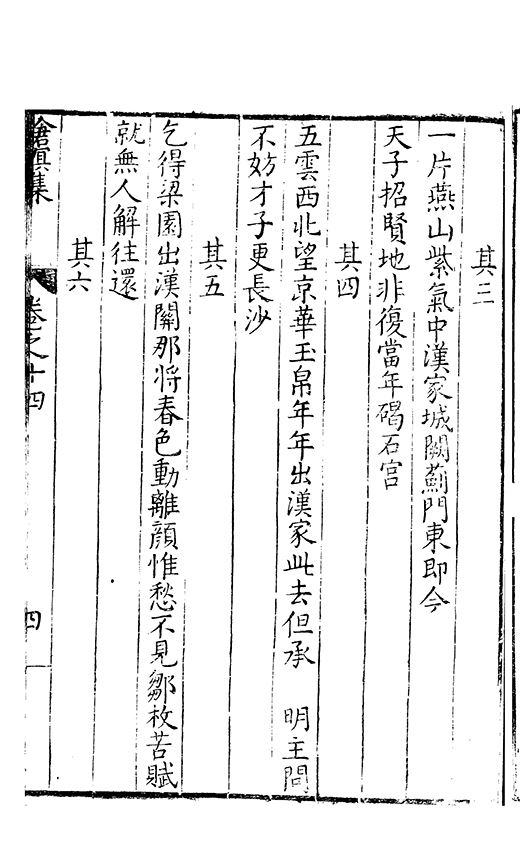 其三
一片燕山紫氣中漢家城闕薊門東即今
天子招賢地非復當年碣石宫
其四
五雲西北望京華玉帛年年出漢家此去但承　明主問
不妨才子更長沙
其五
乞得梁園出漢關那將春色動離顔惟愁不見鄒枚苦賦
就無人解往還
其六
滄溟集　卷之十四　四